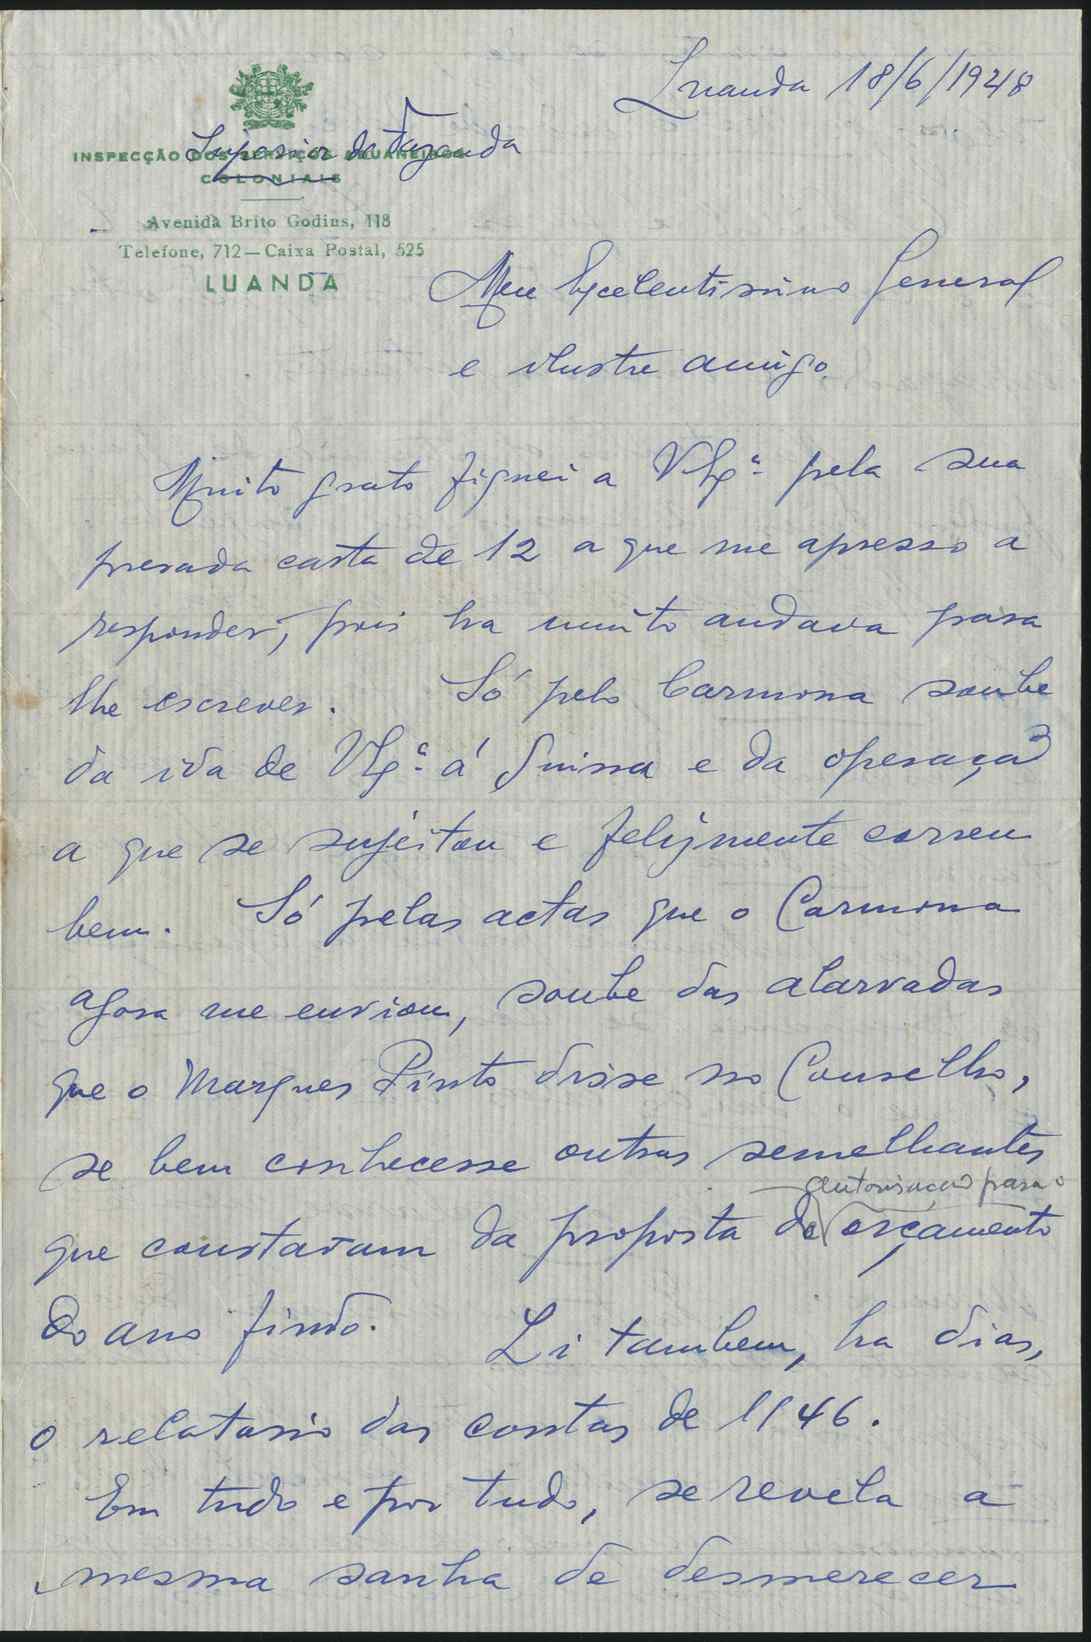 Luanda 18/6/1948
INSPECÇÃO DOS SERVIÇOS ADUANEIROS
Superior da Fazenda
COLONIAIS
Avenida Brito Godins, 118
Telefone, 712—Caixa Postal, 525
LUANDA
Meu Excelentissimo General
e ilustre amigo
Muito grato fiquei a VExª pela sua
presada carta de 12 a que me apresso a
responder, pois ha muito andava para
lhe escrever. Só pelo Carmona soube
da ida de VExª á Suissa e da operação
a que se sujeitou e felizmente correu
bem. Só pelas actas que o Carmona
agora me enviou, soube das alarvadas
que o Marques Pinto disse no Conselho,
se bem conhecesse outras semelhantes
autorisação para o
que constavam da proposta de orçamento
do ano findo. Li tambem, ha dias,
o relatorio das contas de 1946.
Em tudo e por tudo, se revela a
mesma sanha de desmerecer